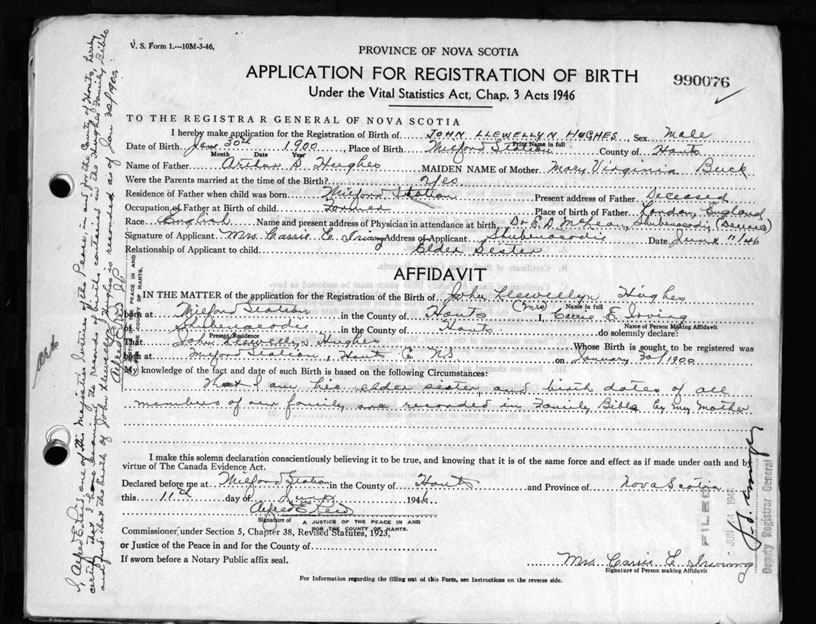 V. S. Form 1.—10M-3-46.
PROVINCE OF NOVA SCOTIA
APPLICATION FOR REGISTRATION OF BIRTH
990076
Under the Vital Statistics Act, Chap. 3 Acts 1946
TO THE REGISTRAR GENERAL OF NOVA SCOTIA
I hereby make application for the Registration of Birth of JOHN LLEWELLYN HUGHES, Sex Male
Print Name in full
Date of Birth Jan 30th 1900, Place of Birth Milford Station County of Hants
Month Date Year
Name of Father Arthur D Hughes MAIDEN NAME of Mother Mary Virginia Buck
Were the Parents married at the time of Birth? Yes
Residence of Father when child was born Milford Station Present address of Father Deceased
Occupation of Father at Birth of child Farmer Place of birth of Father London, England
Race English Name and present address of Physician in attendance at birth Dr E. D. McLean, Shubenacadie (Deceased)
Signature of Applicant Mrs Carrie E Irving Address of Applicant Shubenacadie Date June 11/46
Relationship of Applicant to child Elder Sister
AFFIDAVIT
IN THE MATTER of the application for the Registration of Birth of John Llewellyn Hughes
Name in full
born at Milford Station in the County of Hants I, (Mrs) Carrie E Irving
Name of Person Making Affidavit
of Shubenacadie in the County of Hants do solemnly declare:
That John Llewellyn Hughes Whose Birth is sought to be registered was
born at Milford Station, Hants Co. N.S. on January 30/1900
My knowledge of the fact and date of such Birth is based on the following Circumstances:
That I am his elder sester, and birth dates of all
members of our family are recorded in Family Bible by my mother
I make this solemn declaration conscientiously believing it to be true, and knowing that it is of the same force and effect as if made under oath and by
virtue of The Canada Evidence Act.
Declared before me at Milford Station in the County of Hants and Province of Nova Scotia
this 11th day of June 1946
Alfred E Reid
Signature of
A JUSTICE OF THE PEACE IN AND
FOR THE COUNTY OF HANTS.
Commissioner under Section 5, Chapter 38, Revised Statutes, 1923,
or Justice of the Peace in and for the County of
If sworn before a Notary Public affix seal.
Mrs Carrie E Irving
Signature of Person making Affidavit
For Information regarding the filling out of this Form, see Instructions on the reverse side.
I, Alfred E Reid, one of the Magistrates Justices of the Peace in and for the County of Hants, hereby
certify that I have examined the records of birth, contained in the Hughes Family Bible
and find that the birth of John Llewellyn Hughes is recorded as of Jan 30/1900.
Alfred E Reid J.P.
PEACE IN AND
OF HANTS.
FILED
JUN 1946
Deputy Registrar General